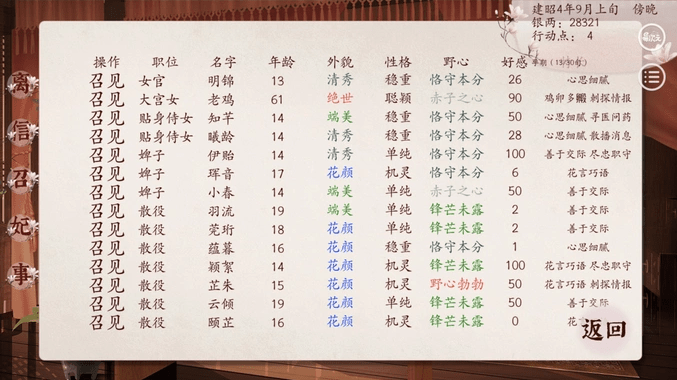 建昭4年9月上旬 傍晚
银两：28321
行动点： 4
操作 职位 名字 年龄 外貌 性格 野心 好感
召见 女官 明锦 13 清秀 稳重 恪守本分 26 心思细腻
召见 大宫女 老鸡 61 绝世 聪颖 赤子之心 90 鸡卵多 刺探情报
召见 贴身侍女 知芊 14 端美 稳重 恪守本分 50 心思细腻 寻医问药
召见 贴身侍女 曦龄 14 清秀 稳重 恪守本分 28 心思细腻 散播消息
召见 婢子 伊贻 14 清秀 单纯 恪守本分 100 善于交际 尽忠职守
召见 婢子 珲音 17 花颜 机灵 恪守本分 6 花言巧语
召见 婢子 小春 14 端美 单纯 赤子之心 50 善于交际
召见 散役 羽流 19 端美 单纯 锋芒未露 2 善于交际
召见 散役 莞珩 18 花颜 单纯 锋芒未露 2 善于交际
召见 散役 蕴暮 16 花颜 稳重 恪守本分 1 心思细腻
召见 散役 颖絮 14 花颜 机灵 锋芒未露 100 花言巧语 尽忠职守
召见 散役 芷朱 15 花颜 机灵 野心勃勃 50 花言巧语 刺探情报
召见 散役 云倾 19 花颜 单纯 锋芒未露 50 善于交际
召见 散役 颐芷 16 花颜 机灵 锋芒未露 0 花
离
信
召
妃
事
返回